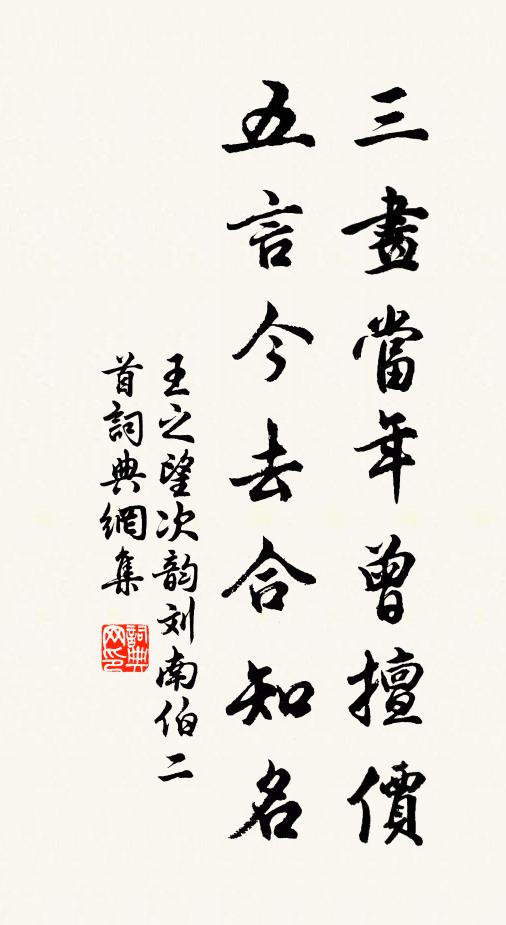 三畫當年曾擅價
五言今去合知名
王之望次韵刘南伯二
首詞典網集
詞典
网印